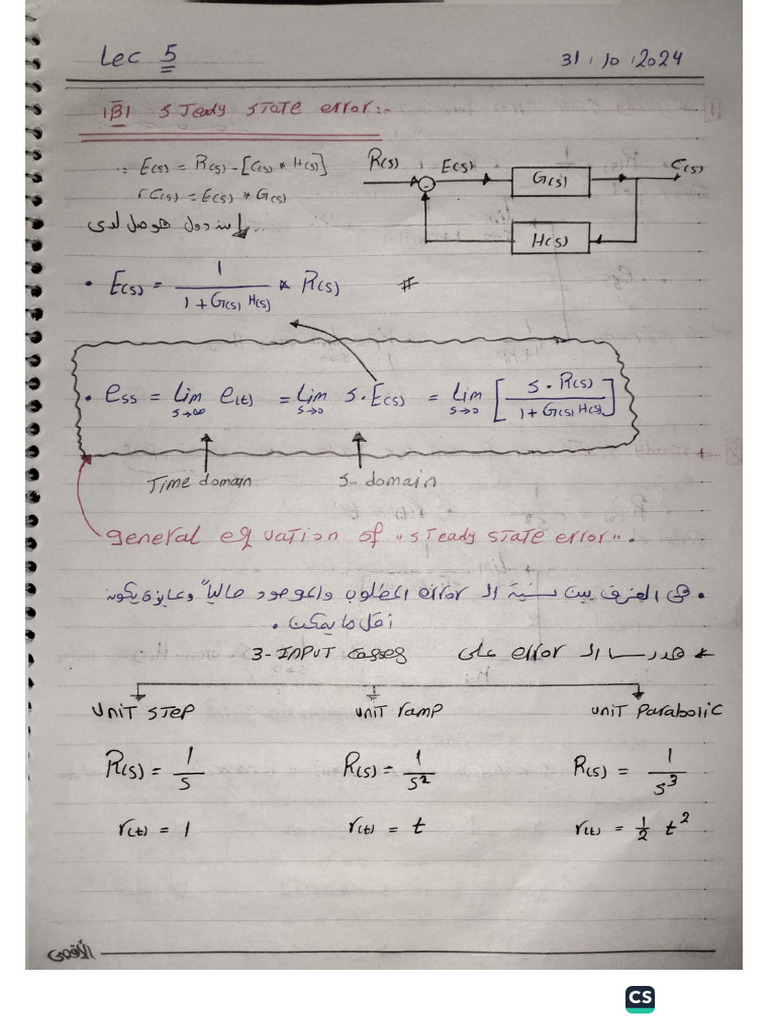 Lec 5
31 / 10 / 2024
|B| steady state error:-
∵ E(s) = R(s) - [C(s) * H(s)]
, C(s) = E(s) * G(s)
R(s) E(s) G(s) C(s)
-
H(s)
من دول هوصل لدى
• E(s) = 1 / (1 + G(s) H(s)) * R(s) #
• ess = Lim s→∞ e(t) = Lim s→0 s . E(s) = Lim s→0 [ s . R(s) / (1 + G(s) H(s)) ]
Time domain s - domain
general equation of "steady state error".
• هى الفرق بين نسبة الـ error المطلوب والموجود حالياً وعايزة يكون
أقل ما يمكن .
* هدرسا الـ error على 3 - INPUT casses
UNIT STEP UNIT ramp UNIT Parabolic
R(s) = 1/s R(s) = 1/s² R(s) = 1/s³
r(t) = 1 r(t) = t r(t) = 1/2 t²
الأقصى
CS